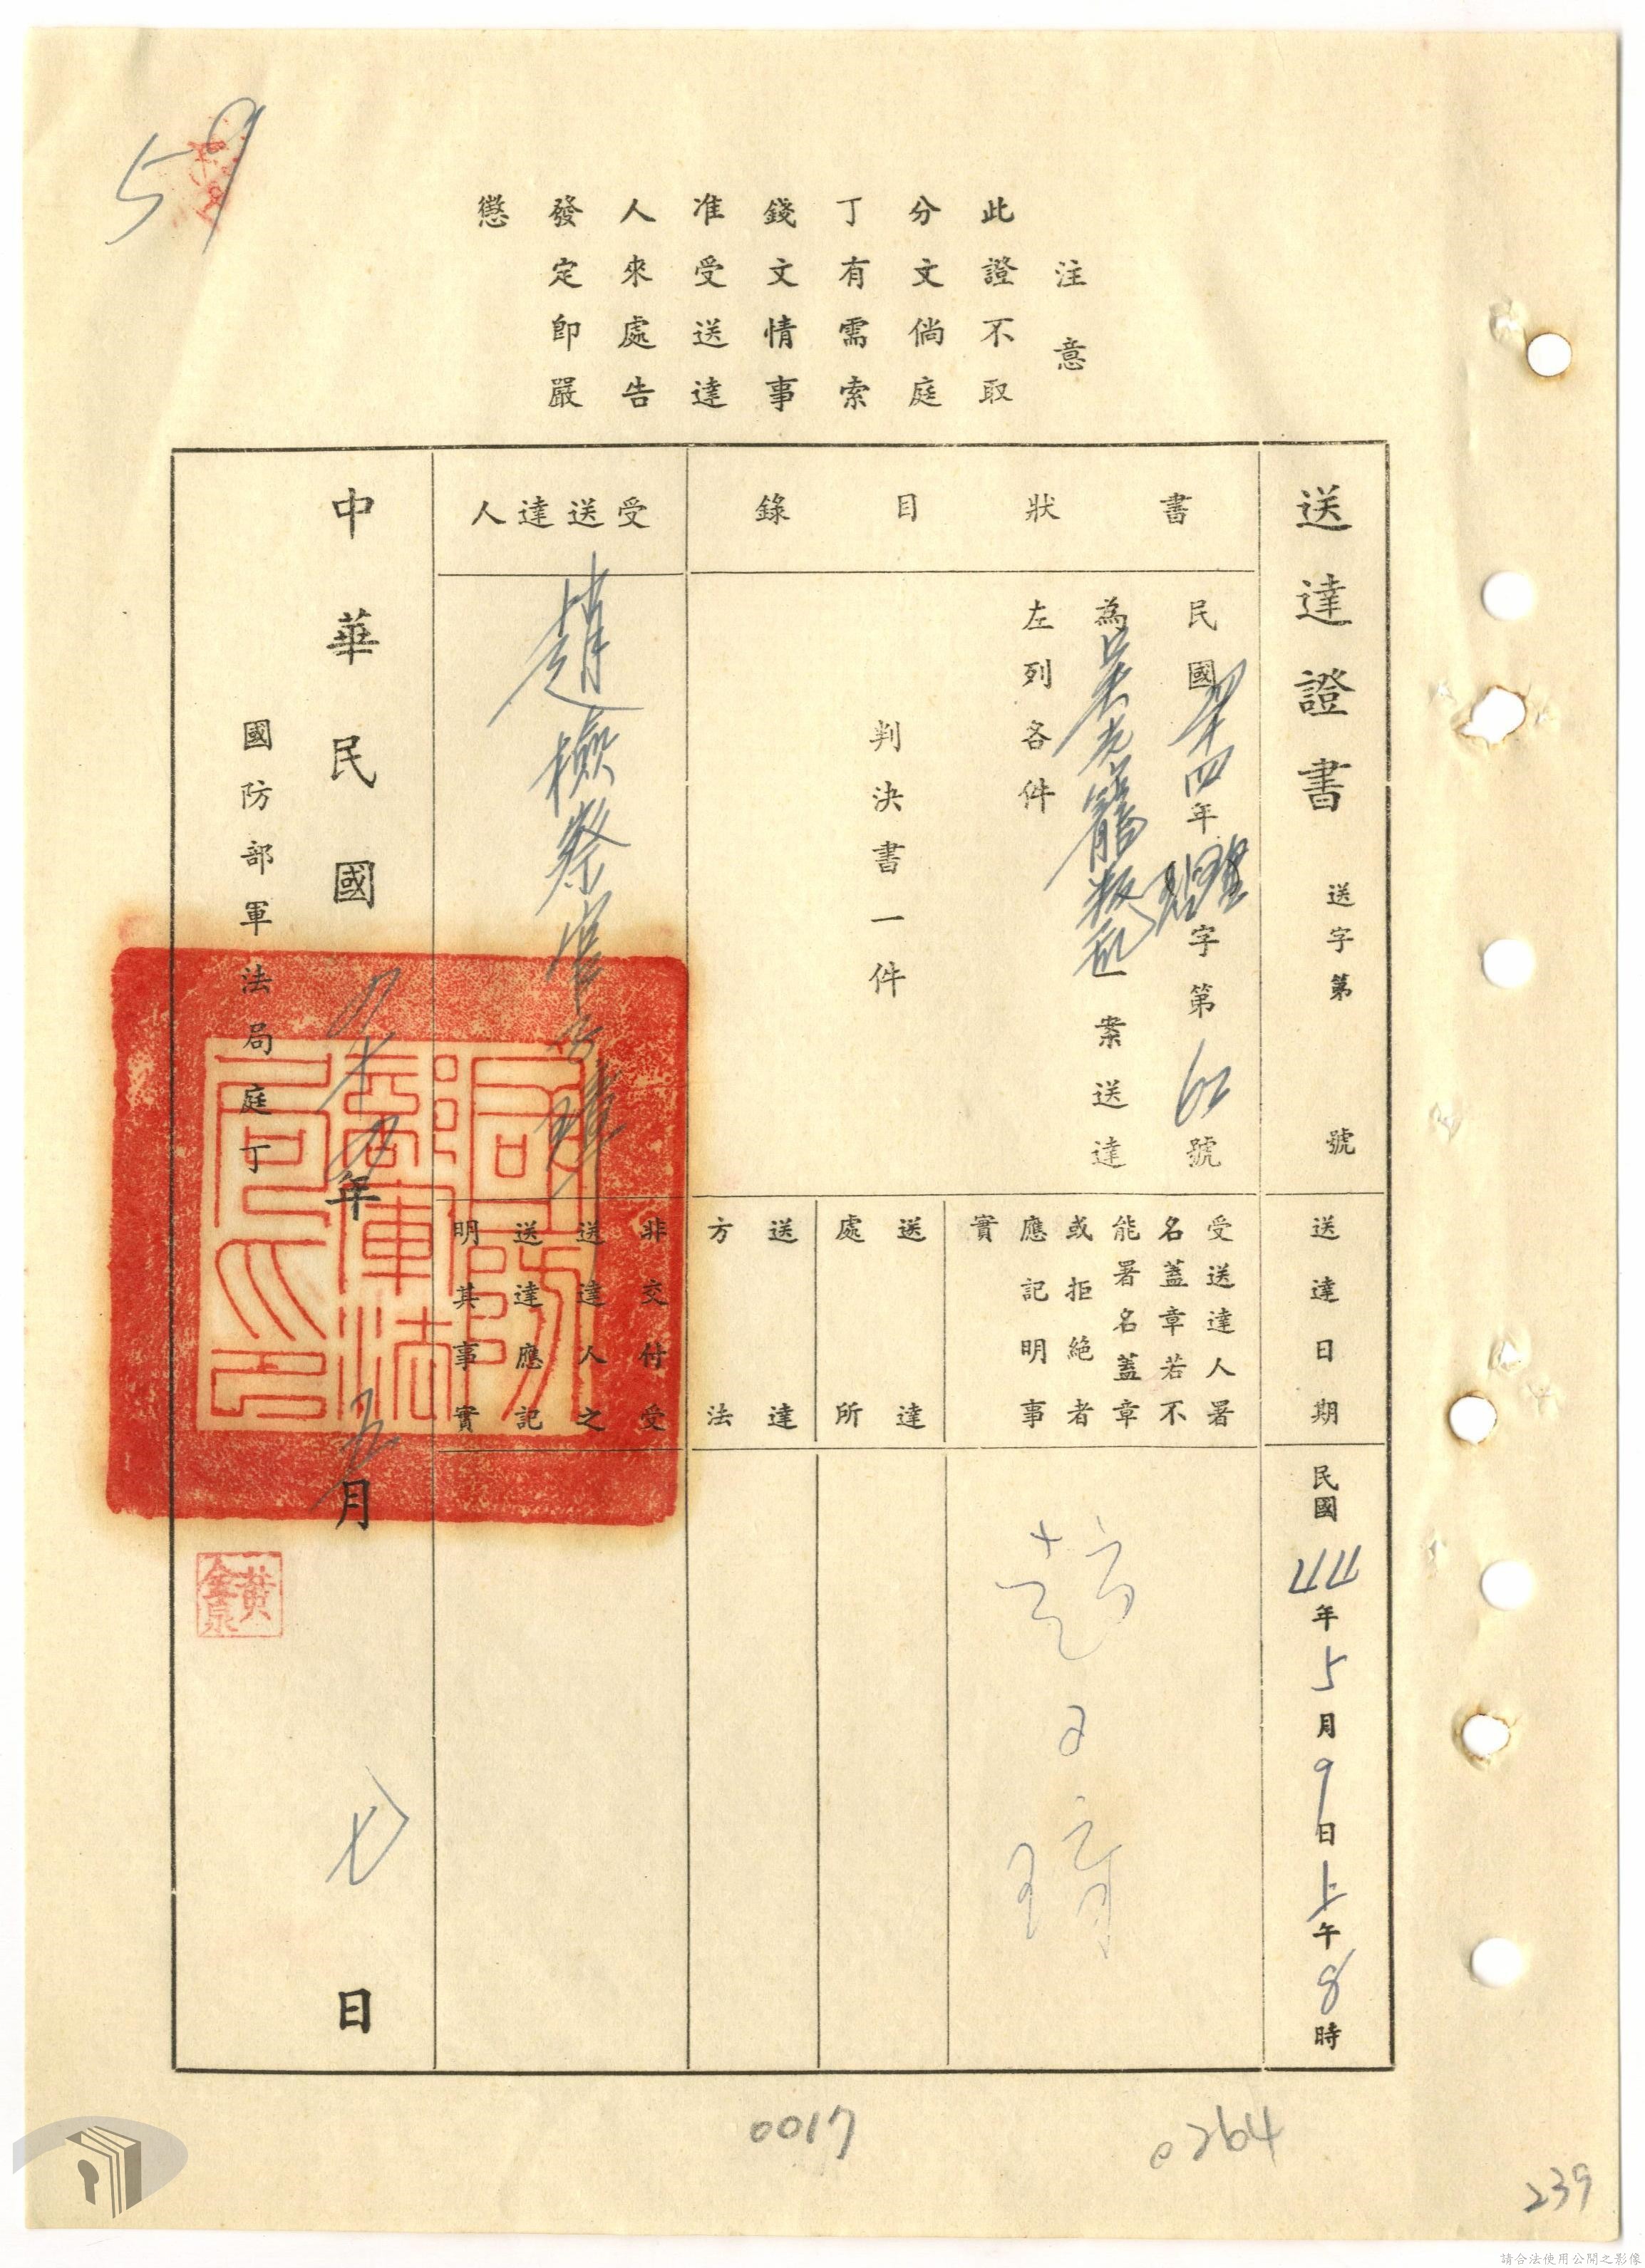 59
注意
此證不取
分文倘庭
丁有需索
錢文情事
准受送達
人來處告
發定即嚴
懲
送達證書 送字第 號
書狀目錄
民國四十四年 字第 62 號
為吳 叛亂一案送達
左列各件
判決書一件
受送達人
趙檢察官公瑋
中華民國四十四年五月七日
國防部軍法局庭丁
國防部軍法局印
黃金泉
送達日期
民國44年5月9日上午8時
受送達人署
名蓋章若不
能署名蓋章
或拒絕者
應記明事
實
趙公
送達
處所
送達
方法
非交付受
送達人之
送達應記
明其事實
0017
0264
239
請合法使用公開之影像